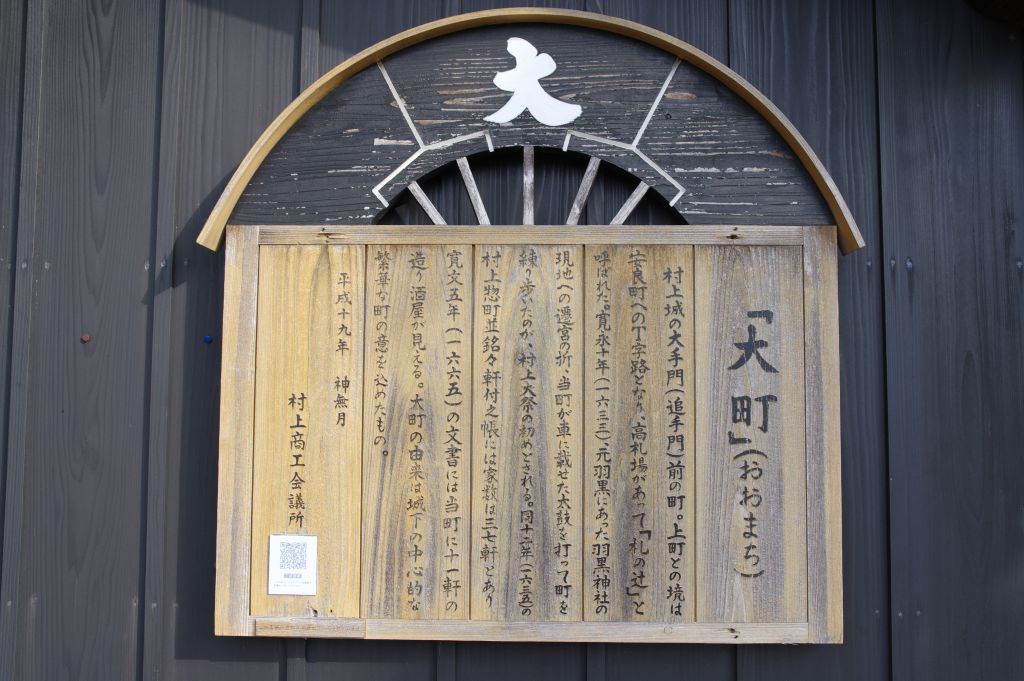 大
「大町」(おおまち)
村上城の大手門(追手門)前の町。上町との境は
安良町への丁字路となり、高札場があって「札の辻」と
呼ばれた。寛永十年(一六三三)、元羽黒にあった羽黒神社の
現地への遷宮の折、当町が車に載せた太鼓を打って町を
練り歩いたのが、村上大祭の初めとされる。同十二年(一六三五)の
村上惣町並銘々軒付之帳には家数は三七軒とあり
寛文五年(一六六五)の文書には当町に十一軒の
造り酒屋が見える。大町の由来は城下の中心的な
繁華な町の意を込めたもの。
平成十九年 神無月
村上商工会議所